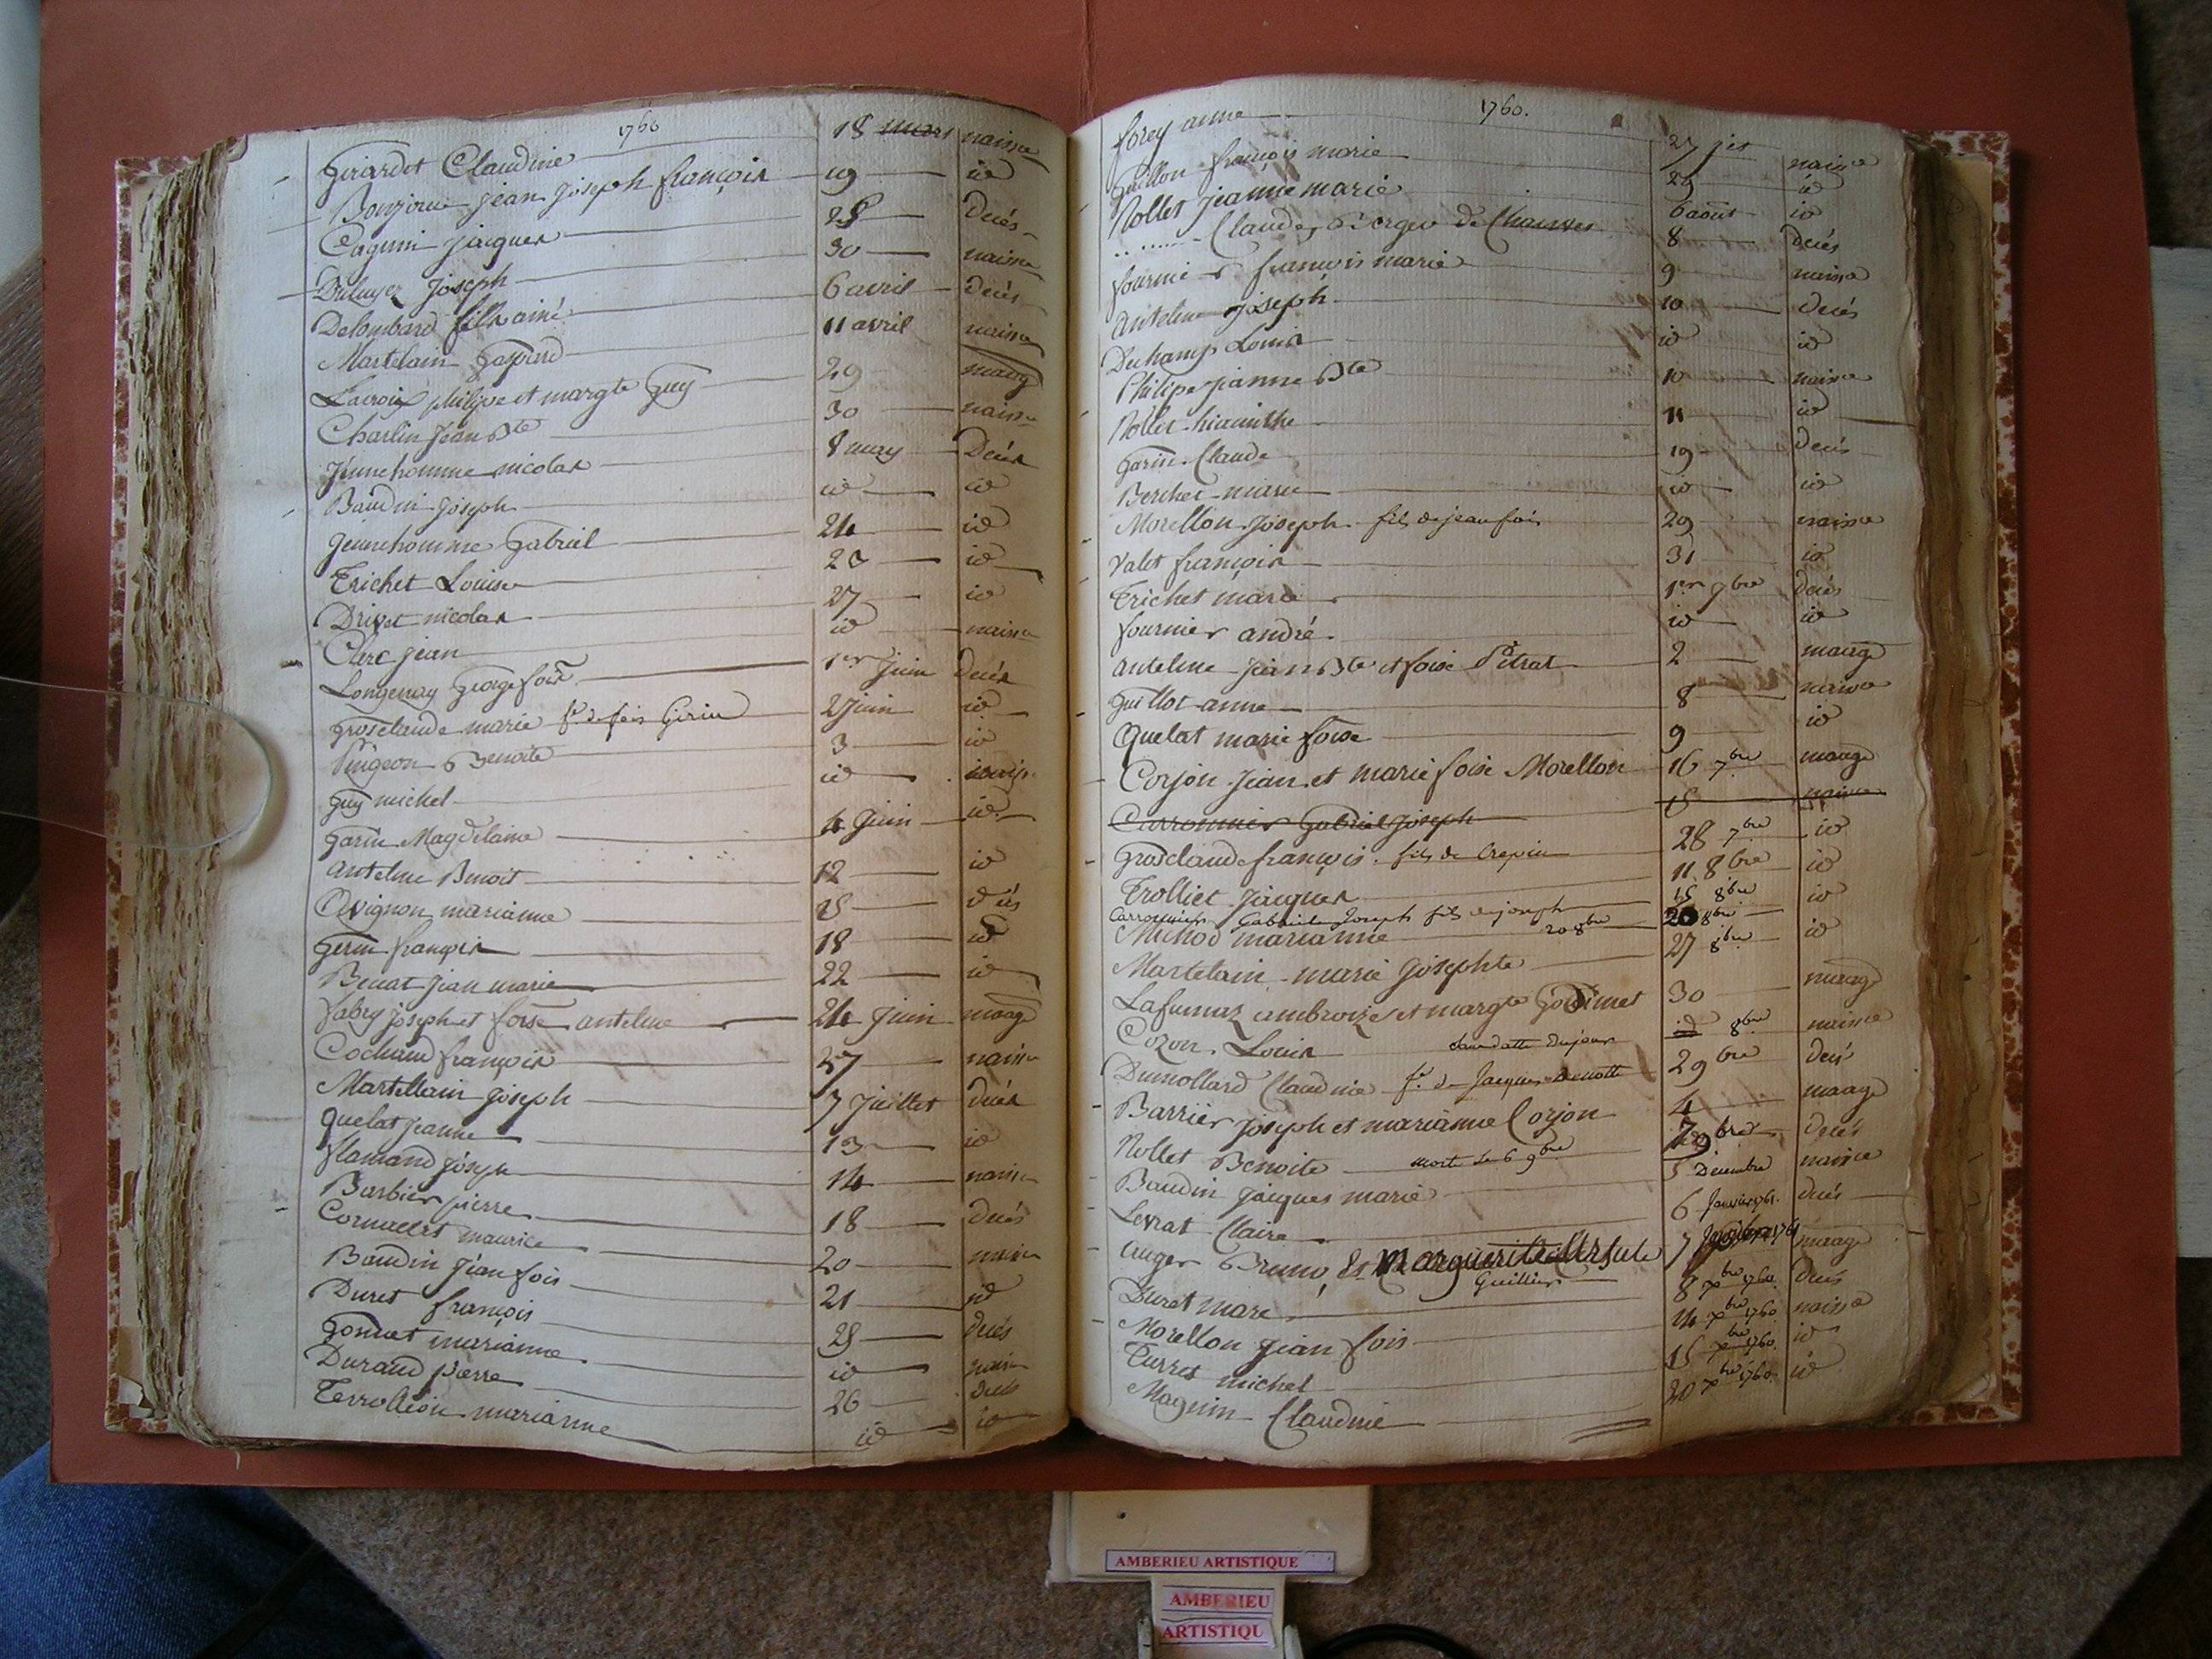 1760
Girardet Claudine 18 mars naisce
Bonjour jean joseph françois 19 id
Cagnin jacques 28 Decés
Joseph 30 naisce
Delombard fils ainé 6 avril decés
Martelain Gaspard 11 avril naisce
Lacroix philipe et margte Guy 29 maage
Charlin Jean Bte 30 naisce
Jeunehomme nicolas 8 may Decés
Baudin Joseph id id
Jeunehomme Gabriel 24 id
Trichet Louise id
Drivet nicolas 27 id
Clerc jean id naisce
Longeray George fois 1er Juin Decés
Grosclaude marie fe de fois Girin 2 juin id
Pingeon Benoite 3 id
Guy michel id
Garin Magdelaine 4 Juin id
anteline Benoit 12 id
Avignon marianne 15 decés
Gerin françois 18 id
Benat jean marie 22 id
fabry joseph et foise anteline 24 Juin maage
Cochand françois 27 naisce
Martellain joseph 7 Juillet decés
Quelat jeanne 13 id
flamand joseph 14 naisce
Barbier pierre 18 decés
maurice 20 naisce
Baudin Jean fois 21 id
Duret françois 23 decés
marianne id naisce
Durand pierre 26 decés
Terrollion marianne id id
1760.
forey anne 27 jet naisce
Guillon françois marie 29 id
Nollet jeanne marie 6 aoust id
...... Claude, Berger de 8 decés
fournier françois marie 9 naisce
anteline joseph 10 decés
Duchamp Louis id id
Philipe jeanne Bte 10 naisce
Nollet hiacinthe 11 id
Garin Claude 19 decés
Berchet marie id id
Morellon Joseph fils de jean fois 29 naisce
Valet françois 31 id
Trichet marie 1er 7bre decés
fournier andré id id
anteline jean Bte et foise Pétrat 2 maage
Guillot anne 8 naisce
Quelat marie foise 9 id
Corjon Jean et marie foise Morellon 16 7bre maage
Carronnier Gabriel Joseph 18 naisce
Grosclaude françois fils de Crepin 28 7bre id
Trolliet Jacques 11 8bre id
Carronnier Gabriel Joseph fils de joseph 18 8bre id
Michod marianne 20 8bre 20 8bre
Martelain marie Josephte 27 8bre id
Lafumaz ambroize et margte Godimet 30 maage
Cozon Louis id 8bre naisce
Dumollard Claudine fe de Jacques Benoit 2 9bre decés
Barrier joseph et marianne Corjon 4 maage
Nollet Benoite morte le 6 9bre 7 9bre decés
Baudin jacques marie 5 Decembre naisce
Levrat Claire 6 Janvier 1761. decés
auger Bruno, et Marguerite Ursule 7 1761 maage
Guillier
Duret marc 8 xbre 1760. decés
Morellon jean fois 14 xbre 1760. naisce
Turret michel 15 xbre 1760. id
Magnin Claudine 20 xbre 1760. id
AMBERIEU ARTISTIQUE
AMBERIEU
ARTISTIQU